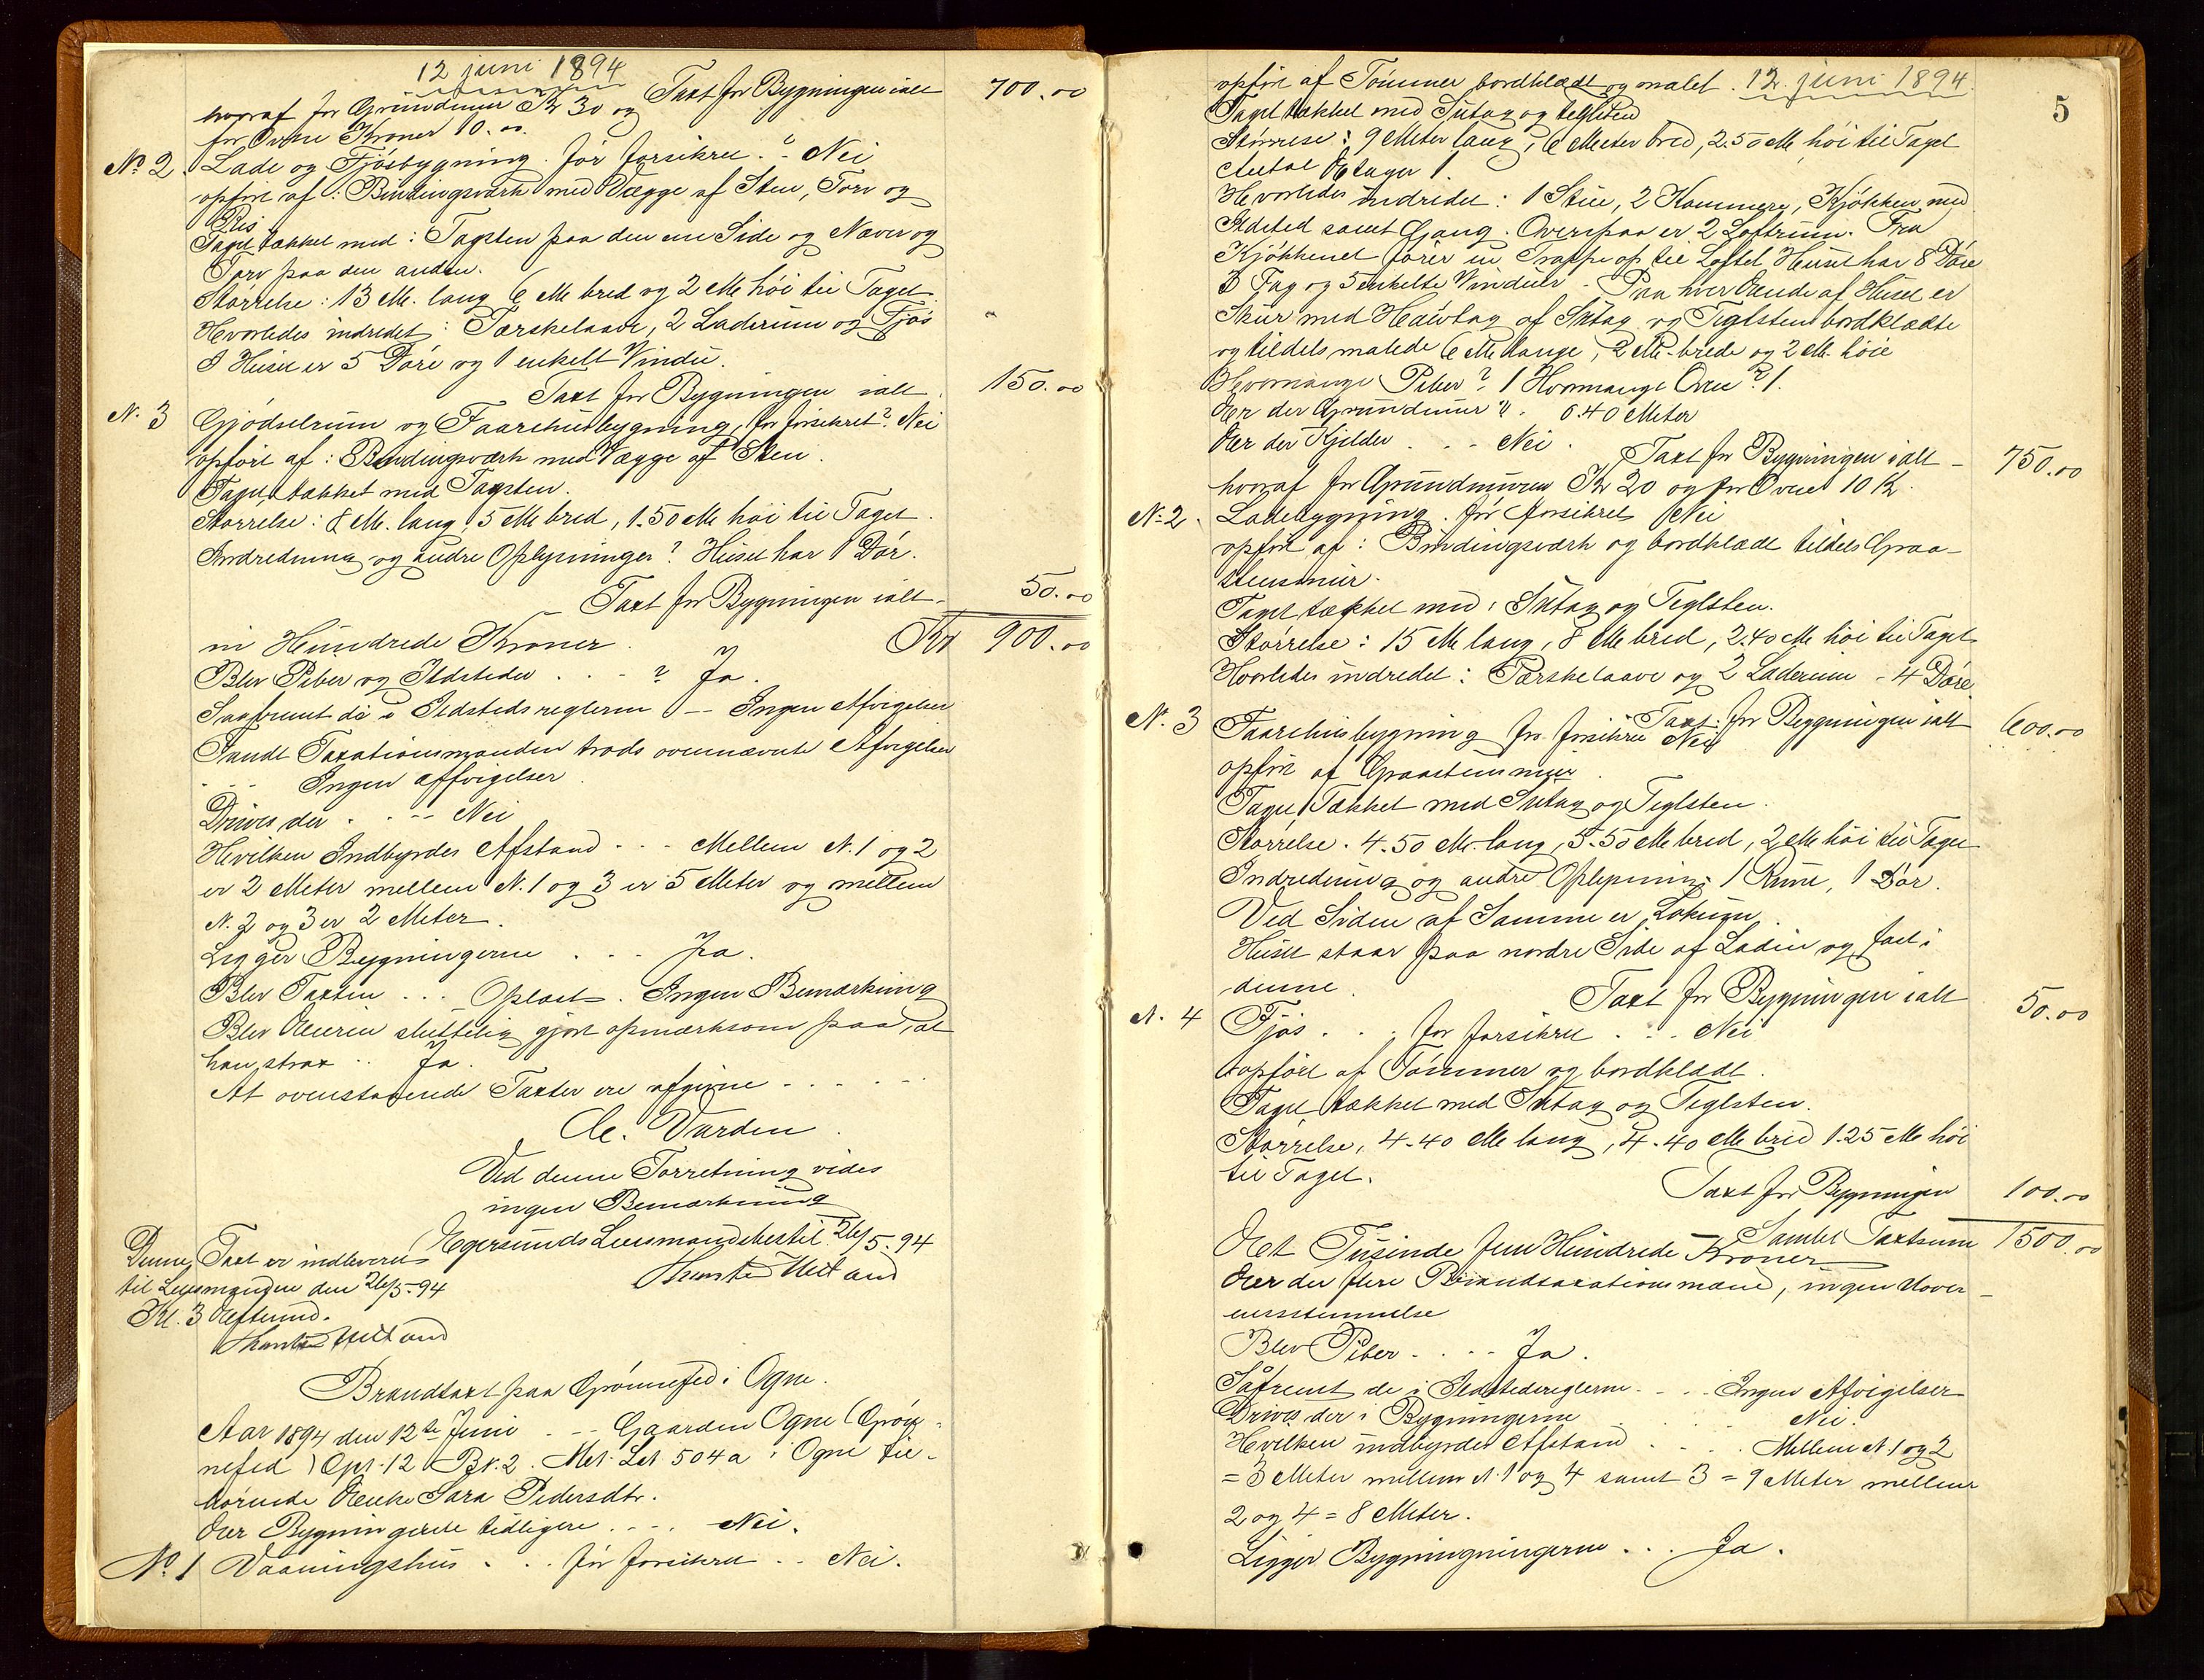 12 juni 1894
Taxt for Bygningen ialt 700.00
hvoraf for Grundmur Kr 30 og
for Ovne Kroner 10.00
No 2. Lade og Fjøsbygning. før forsikret.? - Nei
opført af: Bindingsværk med Vægge af Sten, Torv og
Ris
Taget tækket med: Tagsten paa den ene Side og Næver og
Torv paa den anden.
Størrelse: 13 M. lang 6 M bred og 2 M høi til Taget
Hvorledes indredet: Tærskelaave, 2 Laderum og Fjøs
I Huset er 5 Døre og 1 enkelt Vindu.
Taxt for Bygningen ialt. 150.00
N. 3 Gjødselrum og Faarehusbygning, før forsikret? Nei
opført af: Bindingsværk med Vægge af Sten.
Taget tækket med Tagsten.
Størrelse: 8 M. lang, 5 M bred, 1.50 M høi til Taget.
Indredning og andre Oplysninger? Huset har 1 Dør.
Taxt for Bygningen ialt - 50.00
ni Hundrede Kroner. Kr 900.00
Blev Piber og Ildsteder . . - ? Ja.
Saafremt de i Ildstedsreglerne - - Ingen Afvigelser
Fandt Taxationsmanden trods ovennævnte Afvigelser
- - Ingen afvigelser.
Drives der . . - - Nei
Hvilken Indbyrdes Afstand - - - Mellem N. 1 og 2
er 2 Meter mellem N. 1 og 3 er 5 Meter og mellem
N. 2 og 3 er 2 Meter.
Ligger Bygningerne . . . Ja.
Blev Taxten . . . Oplæst. Ingen Bemærkning
Blev Eieren sluttelig gjort opmærksom paa, at
han strax . . Ja.
At ovenstaaende Taxter ere afgivne - - - - - -
Varden.
Ved denne Forretning vides
ingen Bemærkning
Egersunds Lensmandsbestil. 26/5.94
Denne Taxt er indleveret
til Lensmanden den 26/5-94
Kl. 3 Efterm.
Brandtaxt paa Grønnefed i Ogne.
Aar 1894 den 12te Juni - - - Gaarden Ogne (Grøn-
nefed) Gnr. 12 Br. 2. Mat. Let 504 a i Ogne til-
hørende Enke Sara Pedersdtr.
Er Bygningerne tidligere . - - . Nei.
No. 1 Vaaningshus - . . før forsikret . . Nei.
5
opført af Tømmer bordklædt og malet. 12 juni 1894
Taget tækket med Sutag og teglsten
Størrelse: 9 Meter lang, 6 Meter bred, 2.50 M høi til Taget
Antal Etager 1.
Hvorledes indredet: 1 Stue, 2 Kammere, Kjøkken med
Ildsted samt Gang. Ovenpaa er 2 Loftrum. Fra
Kjøkkenet fører en Trappe op til Loftet Huset har 8 Døre
3 Fag og 5 enkelte Vinduer - Paa hver Ende af Huset er
Skur med Halvtag af Sutag og Teglsten bordklædte
og tildels malede 6 M lange, 2 M. brede og 2 M. høie
Hvormange Piber? 1 Hvormange Ovne? 1.
Er der Grundmur . 0.40 Meter
Er der Kjelder . - - Nei.
Taxt for Bygningen ialt - 750.00
hvoraf for Grundmuren Kr 20 og for Ovnet 10 K.
No 2. Ladebygning. før forsikret Nei
opført af: Bindingsværk og bordklædt tildels Graa-
stensmur.
Taget tækket med: Sutag og Teglsten.
Størrelse: 15 M lang, 8 M bred, 2.40 M høi til Taget
Hvorledes indredet: Tærskelaave og 2 Laderum - 4 Døre
Taxt for Bygningen ialt 600.00
N. 3 Faarehusbygning før forsikret Nei
opført af Graastensmur.
Taget Tækket med Sutag og Teglsten.
Størrelse. 4.50 M. lang, 3.50 M bred, 2 M høi til Taget
Indredning og andre Oplysning: 1 Rum, 1 Dør.
Ved Siden af Samme er Lokum.
Huset staar paa nordre Side af Laden og fast i
denne.
Taxt for Bygningen ialt 50.00
N. 4 Fjøs . . . før forsikret . - - Nei
opført af Tømmer og bordklædt.
Taget tækket med Sutag og Teglsten.
Størrelse, 4.40 M lang, 4.40 M bred 1.25 M høi
til Taget.
Taxt for Bygningen 100.00
Samlet Taxtsum 1500.00
Et Tusinde fem Hundrede Kroner
Er der flere Brandtaxationsmænd, ingen Uover-
ensstemmelse
Blev Piber - . . - Ja.
Såfremt de i Ildstedsreglerne - - - Ingen Afvigelser
Drives der i Bygningerne Nei.
Hvilken indbyrdes Afstand . . . Mellem N. 1 og 2
= 3 Meter mellem N. 1 og 4 samt 3 = 9 Meter mellem
2 og 4 = 8 Meter.
Ligger Bygningningerne . . . Ja.